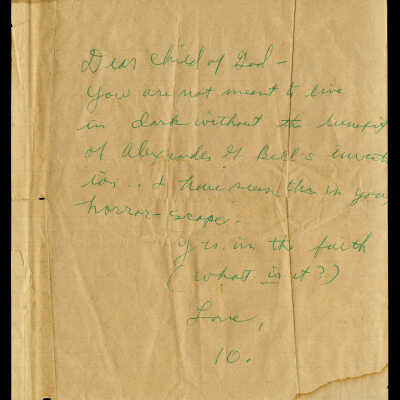 Dear Child of God -
You are not meant to live
in dark without the benefit
of Alexander G Bell's invent
ion .. I have seen this in your
horror-scope.
y rs. in the faith
(what is it?)
Love,
10.